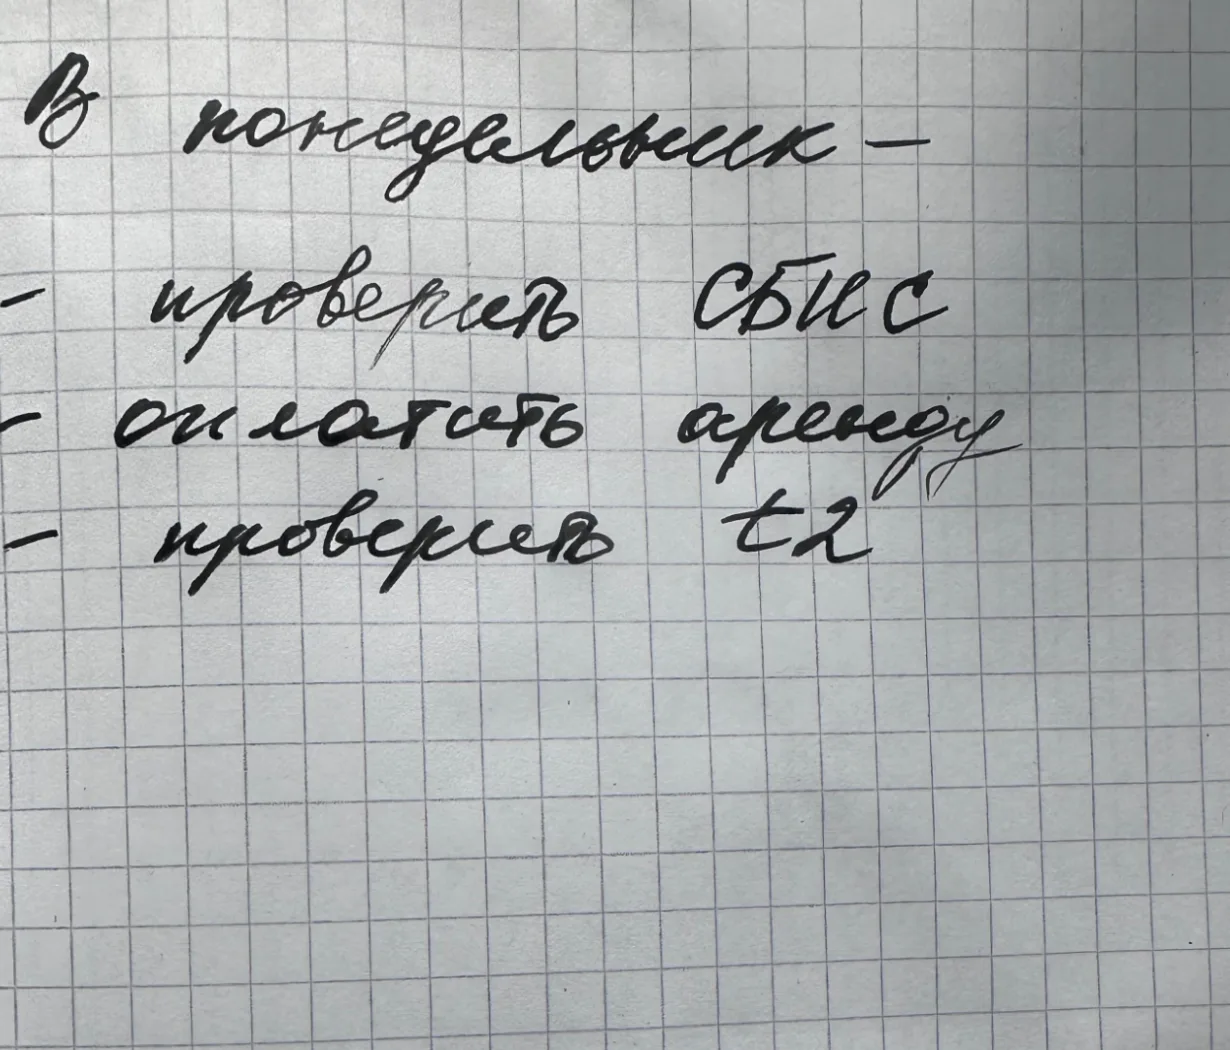 В понедельник –
- проверить СБИС
- оплатить аренду
- проверить t2